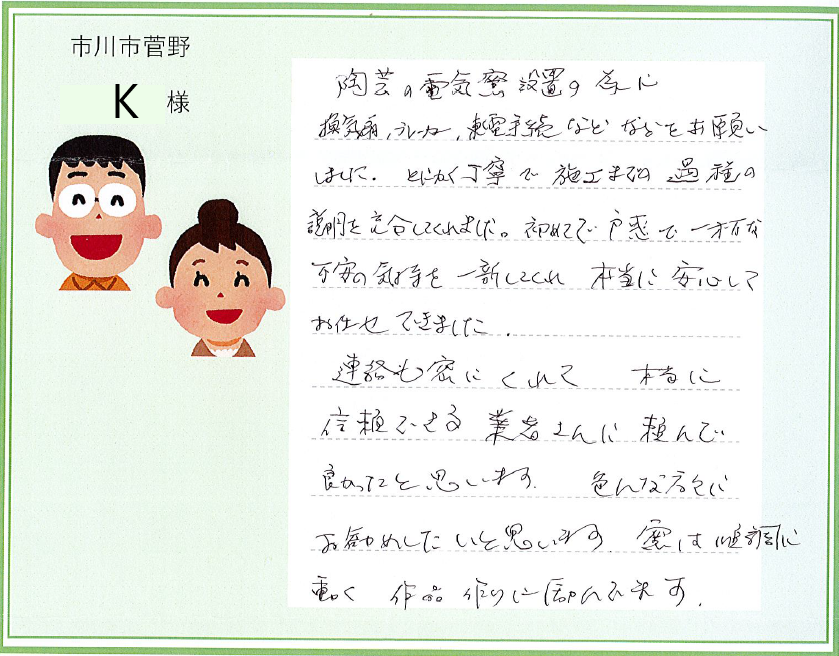 市川市菅野
K 様
陶芸の電気窯設置の為に
換気扇、ブレーカー、東電手続など などをお願い
しました。とにかく丁寧で施工までの過程の
説明を してくれました。初めてで戸惑で一杯な
不安の気持を一新してくれ 本当に安心して
お任せできました.
連絡も密にくれて 本当に
信頼できる業者さんに頼んで
良かったと思います. 色んな方々に
お勧めしたいと思います. 窯は順調に
動く 作品作りに励んでます.